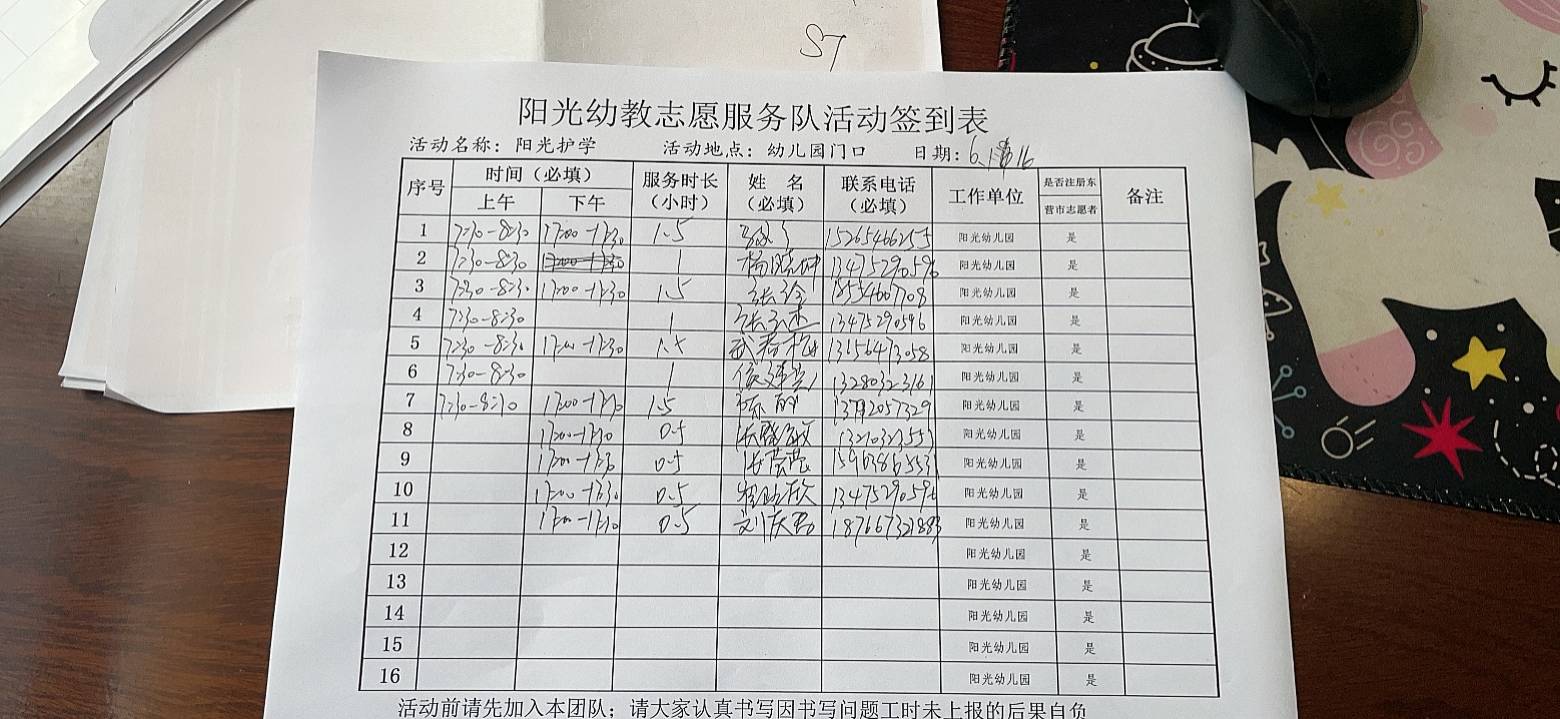 ST
阳光幼教志愿服务队活动签到表
活动名称：阳光护学 活动地点：幼儿园门口 日期：6.16
序号 时间（必填） 上午 下午 服务时长（小时） 姓名（必填） 联系电话（必填） 工作单位 是否注册东营市志愿者 备注
1 7:30-8:30 17:00-17:30 1.5 15265466255 阳光幼儿园 是
2 7:30-8:30 1 杨晓坤 13475290596 阳光幼儿园 是
3 7:30-8:30 17:00-17:30 1.5 阳光幼儿园 是
4 7:30-8:30 1 13475290596 阳光幼儿园 是
5 7:30-8:30 17:00-17:30 1.5 武春梅 13656473058 阳光幼儿园 是
6 7:30-8:30 1 13280323161 阳光幼儿园 是
7 7:30-8:30 17:00-17:30 1.5 阳光幼儿园 是
8 17:00-17:30 0.5 13210323553 阳光幼儿园 是
9 17:00-17:30 0.5 张蓓蓓 15963865531 阳光幼儿园 是
10 17:00-17:30 0.5 13475290596 阳光幼儿园 是
11 17:00-17:30 0.5 18766732883 阳光幼儿园 是
12 阳光幼儿园 是
13 阳光幼儿园 是
14 阳光幼儿园 是
15 阳光幼儿园 是
16 阳光幼儿园 是
活动前请先加入本团队；请大家认真书写因书写问题工时未上报的后果自负